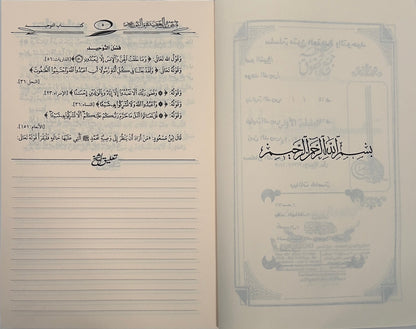 بسم الله الرحمن الرحيم
٥
فضل التوحيد
وقول الله تعالى: ﴿ وما خلقت الجن والإنس إلا ليعبدون ﴾ [الذاريات: ٥٦]
وقوله تعالى: ﴿ ولقد بعثنا في كل أمة رسولا أن اعبدوا الله واجتنبوا الطاغوت ﴾
[النحل: ٣٦]
وقوله: ﴿ وقضى ربك ألا تعبدوا إلا إياه وبالوالدين إحسنا ﴾ [الإسراء: ٢٣]
وقوله: ﴿ واعبدوا الله ولا تشركوا به شيئا ﴾ [النساء: ٣٦]
وقوله: ﴿ قل تعالوا أتل ما حرم ربكم عليكم ألا تشركوا به شيئا ﴾
[الأنعام: ١٥١]
قال ابن مسعود: «من أراد أن ينظر إلى وصية محمد ﷺ التي عليها خاتمه فليقرأ قوله تعالى: